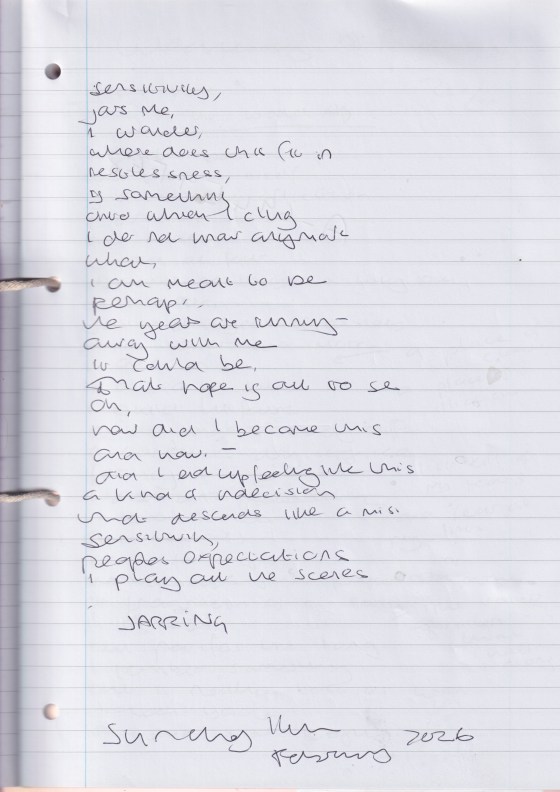 sensitivities,
jars me,
i wander,
where does this fit in
restlessness,
is something
and when I cling
i do not know anymore
what,
i am meant to be
perhaps..
the years are running -
away with me
it could be,
that hope is all to see
oh,
how did I become this
and how. -
did I end up feeling like this
a kind of indecision
that descends like a mist
sensitivity,
peoples expectations
i play out the scenes
JARRING
Sunday
February 2026